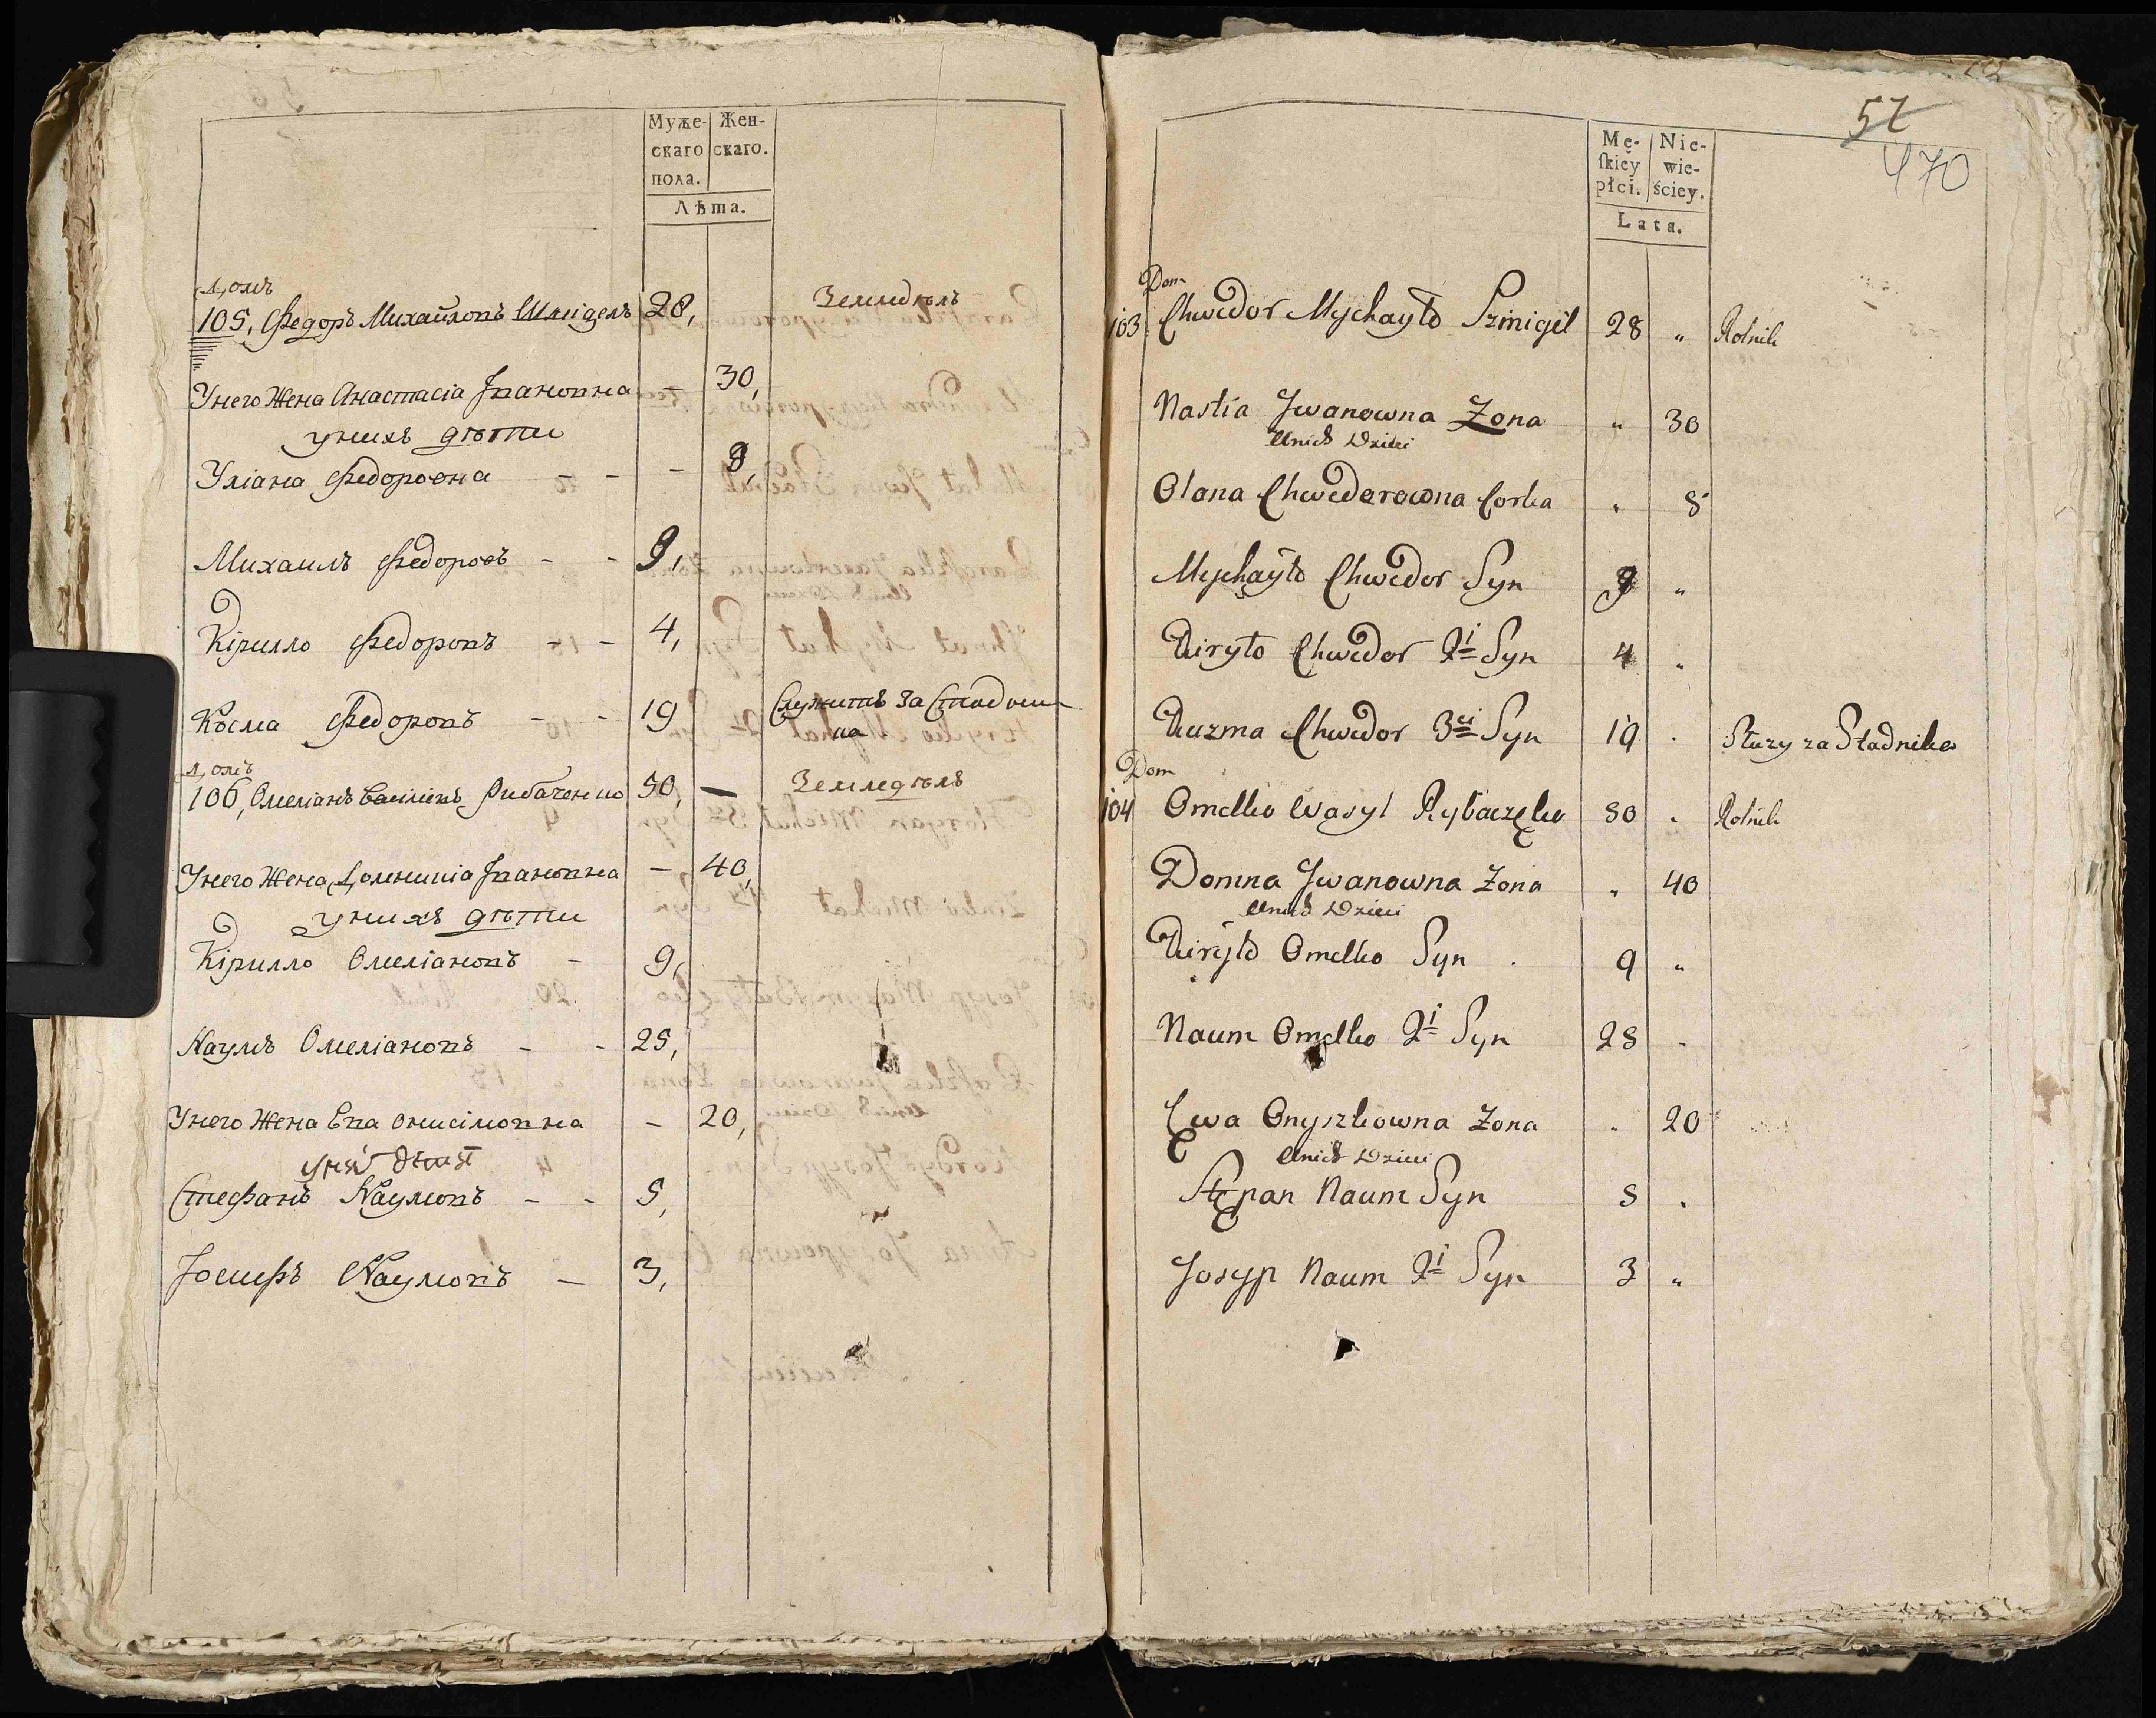 Муже-
скаго
пола.
Жен-
скаго.
Лѣта.
Домъ
105, Федоръ Михайловъ Шмигелъ 28, Земледѣлъ
Унего Жена Анастасіа Івановна — 30,
унихъ дѣти
Уліана Федоровна - - - 8,
Михаилъ Федоровъ - - 9,
Кірилло Федоровъ - - 4,
Косма Федоровъ - - 19 Служитъ за Стадни-
ка
Домъ
106, Омеліанъ Василіевъ Рибаченко 50, — Земледѣлъ
Унего Жена Домникіа Івановна - 40,
унихъ дѣти
Кірилло Омеліановъ - 9,
Наумъ Омеліановъ - - 25,
Унего Жена Ева Онисімовна - 20,
унихъ дѣти
Стефанъ Наумовъ - - 5,
Іосифъ Наумовъ - 3,
52
470
Mę-
skiey
płci.
Nie-
wie-
ściey.
Lata.
Dom
103 Chwedor Mychayło Szmigil 28 „ Rolnik
Nastia Jwanowna Żona „ 30
Unich Dzieci
Olana Chwedorowna Corka „ 8
Mychayło Chwedor Syn 9 „
Kiryło Chwedor 2i Syn 4 „
Kuzma Chwedor 3ci Syn 19 . Służy za Stadnika
Dom
104 Omelko Wasyl Rybaczęko 50 . Rolnik
Domna Jwanowna Żona „ 40
Unich Dzieci
Kiryło Omelko Syn . 9 „
Naum Omelko 2i Syn 25 „
Ewa Onyszkowna Żona „ 20
Unich Dzieci
Stepan Naum Syn 5 .
Josyp Naum 2i Syn 3 „